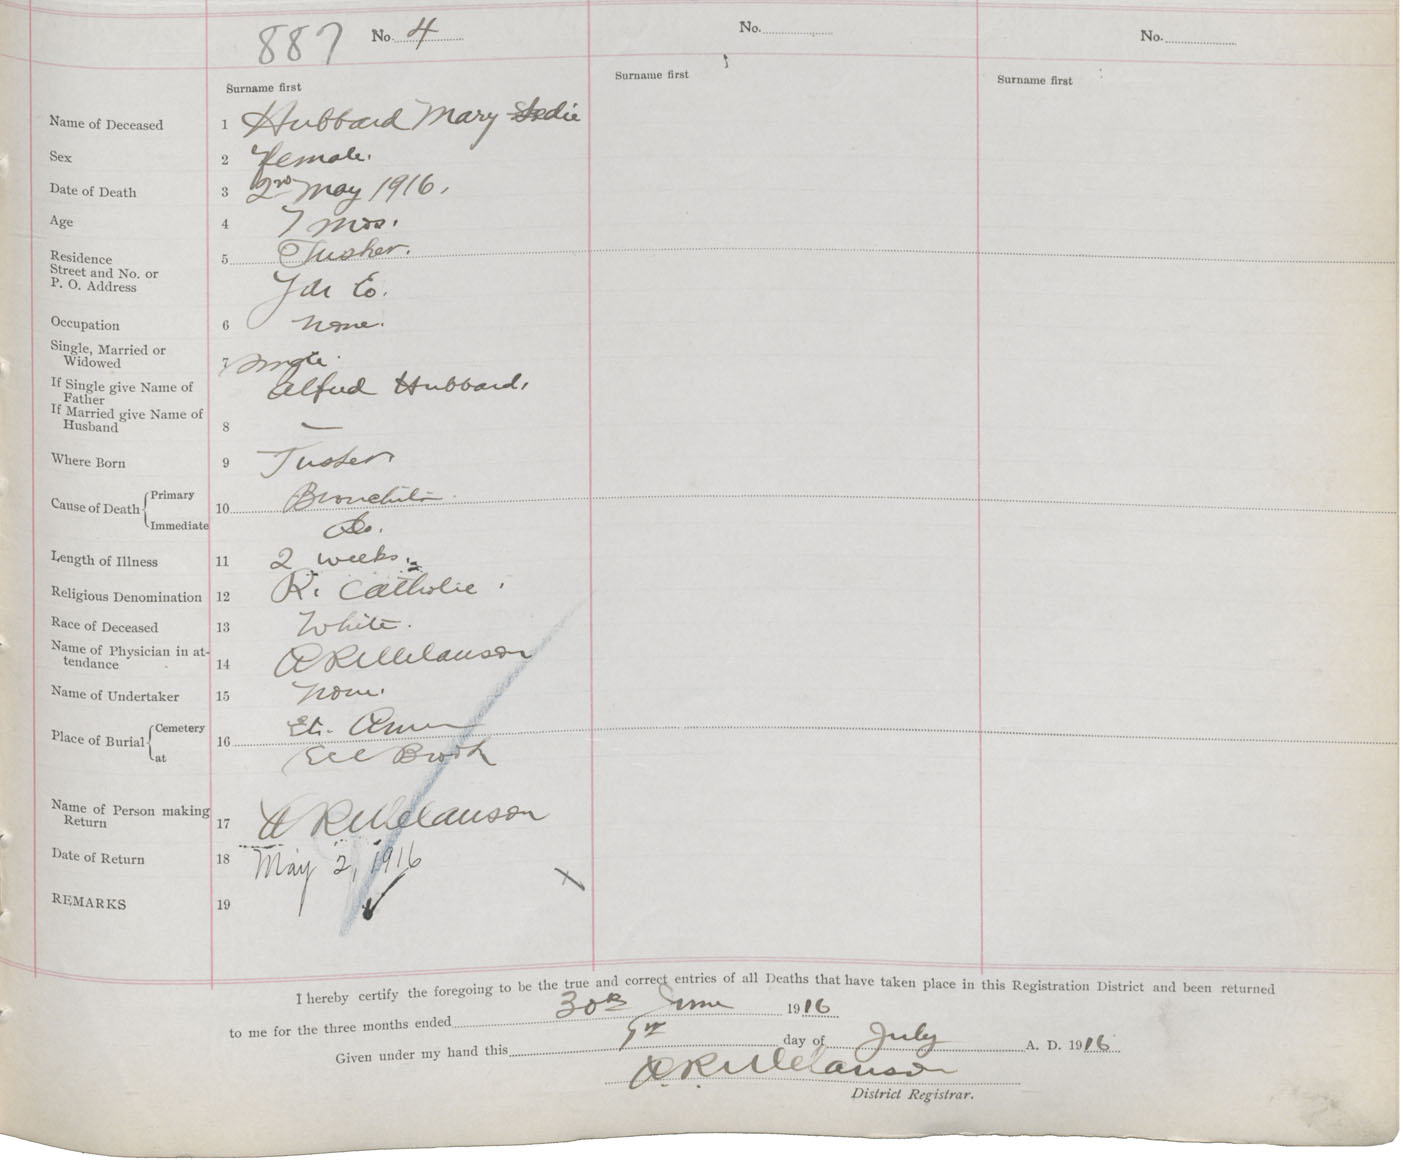 887 No. 4
No.
No.
Surname first
Surname first
Surname first
Name of Deceased 1 Hubbard Mary Sadie
Sex 2 Female.
Date of Death 3 2nd May 1916.
Age 4 7 mos.
Residence 5 Tusket.
Street and No. or
P. O. Address Yar Co.
Occupation 6 None.
Single, Married or
Widowed 7 Single.
If Single give Name of
Father Alfred Hubbard.
If Married give Name of
Husband 8 —
Where Born 9 Tusket
Cause of Death Primary 10 Bronchitis
Immediate Do.
Length of Illness 11 2 weeks.
Religious Denomination 12 R. Catholic.
Race of Deceased 13 White.
Name of Physician in at-
tendance 14 A R Melanson
Name of Undertaker 15 None.
Place of Burial Cemetery 16 St. Anne
at Eel Brook
Name of Person making
Return 17 A R Melanson
Date of Return 18 May 2, 1916
REMARKS 19
I hereby certify the foregoing to be the true and correct entries of all Deaths that have taken place in this Registration District and been returned
to me for the three months ended 30th June 1916
Given under my hand this day of July A. D. 1916
A R Melanson
District Registrar.